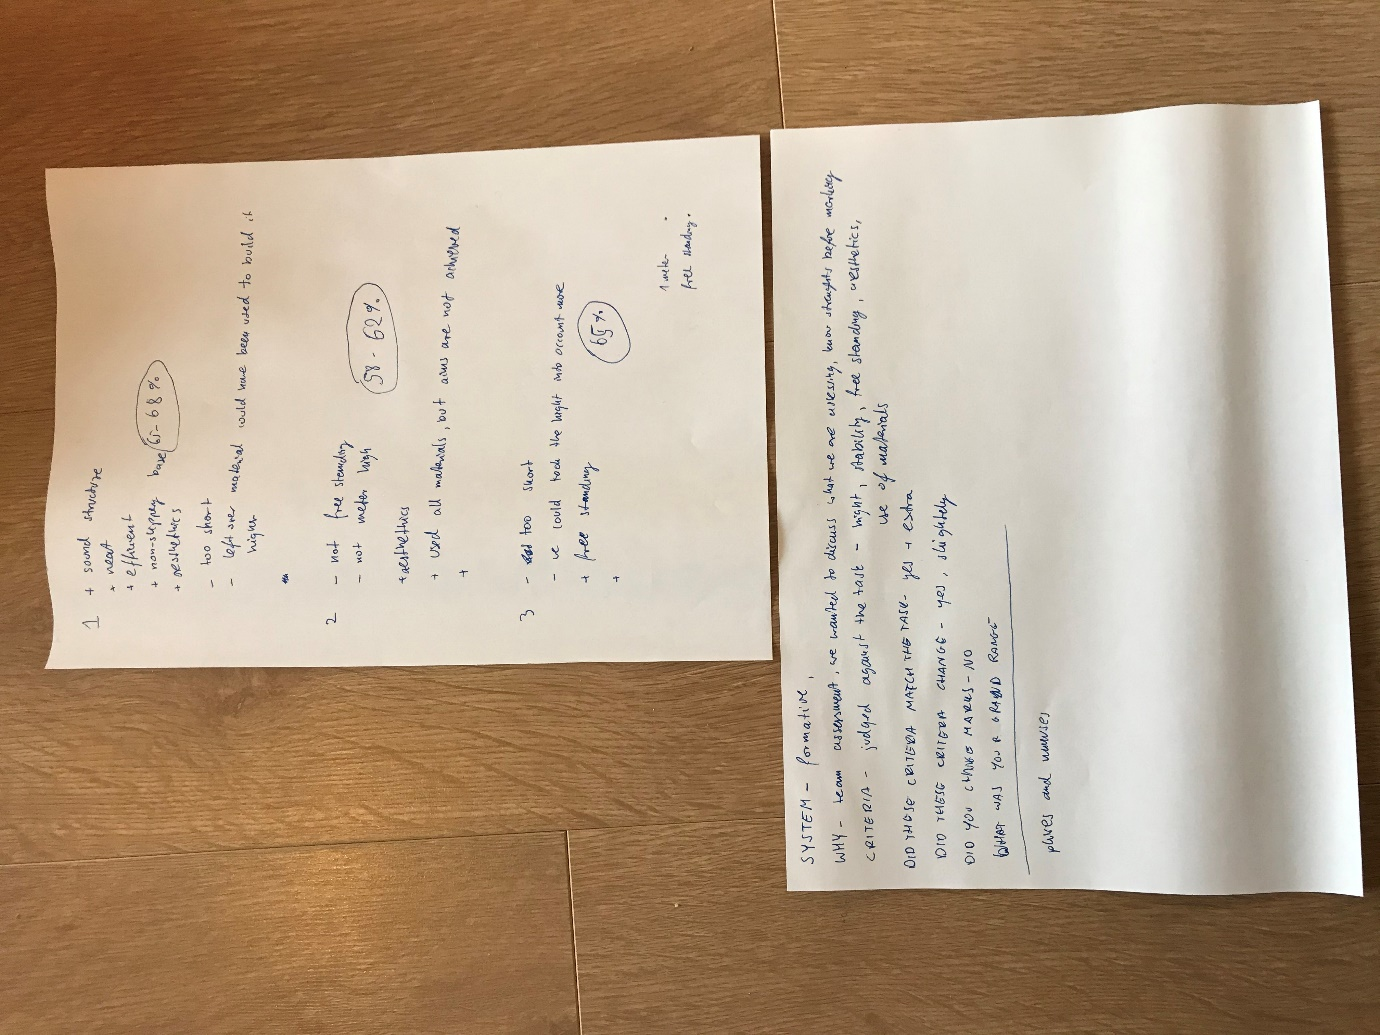 1 + sound structure
+ neat
+ efficient
+ non-slippery base 65-68%
+ aesthethics
- too short
- left over material could have been used to build it
higher
2 - not free standing
- not meter high
58 - 62%
+ aesthethics
+ used all materials, but aims are not achieved
+
3 - too short
- we could took the hight into account more
+ free standing
65%
+
1 meter
free standing.
SYSTEM - formative,
WHY - team assessment, we wanted to discuss what we are assessing, know strenghts before marking
CRITERIA - judged against the task - hight, stability, free standing, aesthetics,
use of materials
DID THOSE CRITERIA MATCH THE TASK - yes + extra
DID THESE CRITERIA CHANGE - yes, slightely
DID YOU CHANGE MARKS - NO
WHAT WAS YOUR GRAND RANGE
pluses and minuses